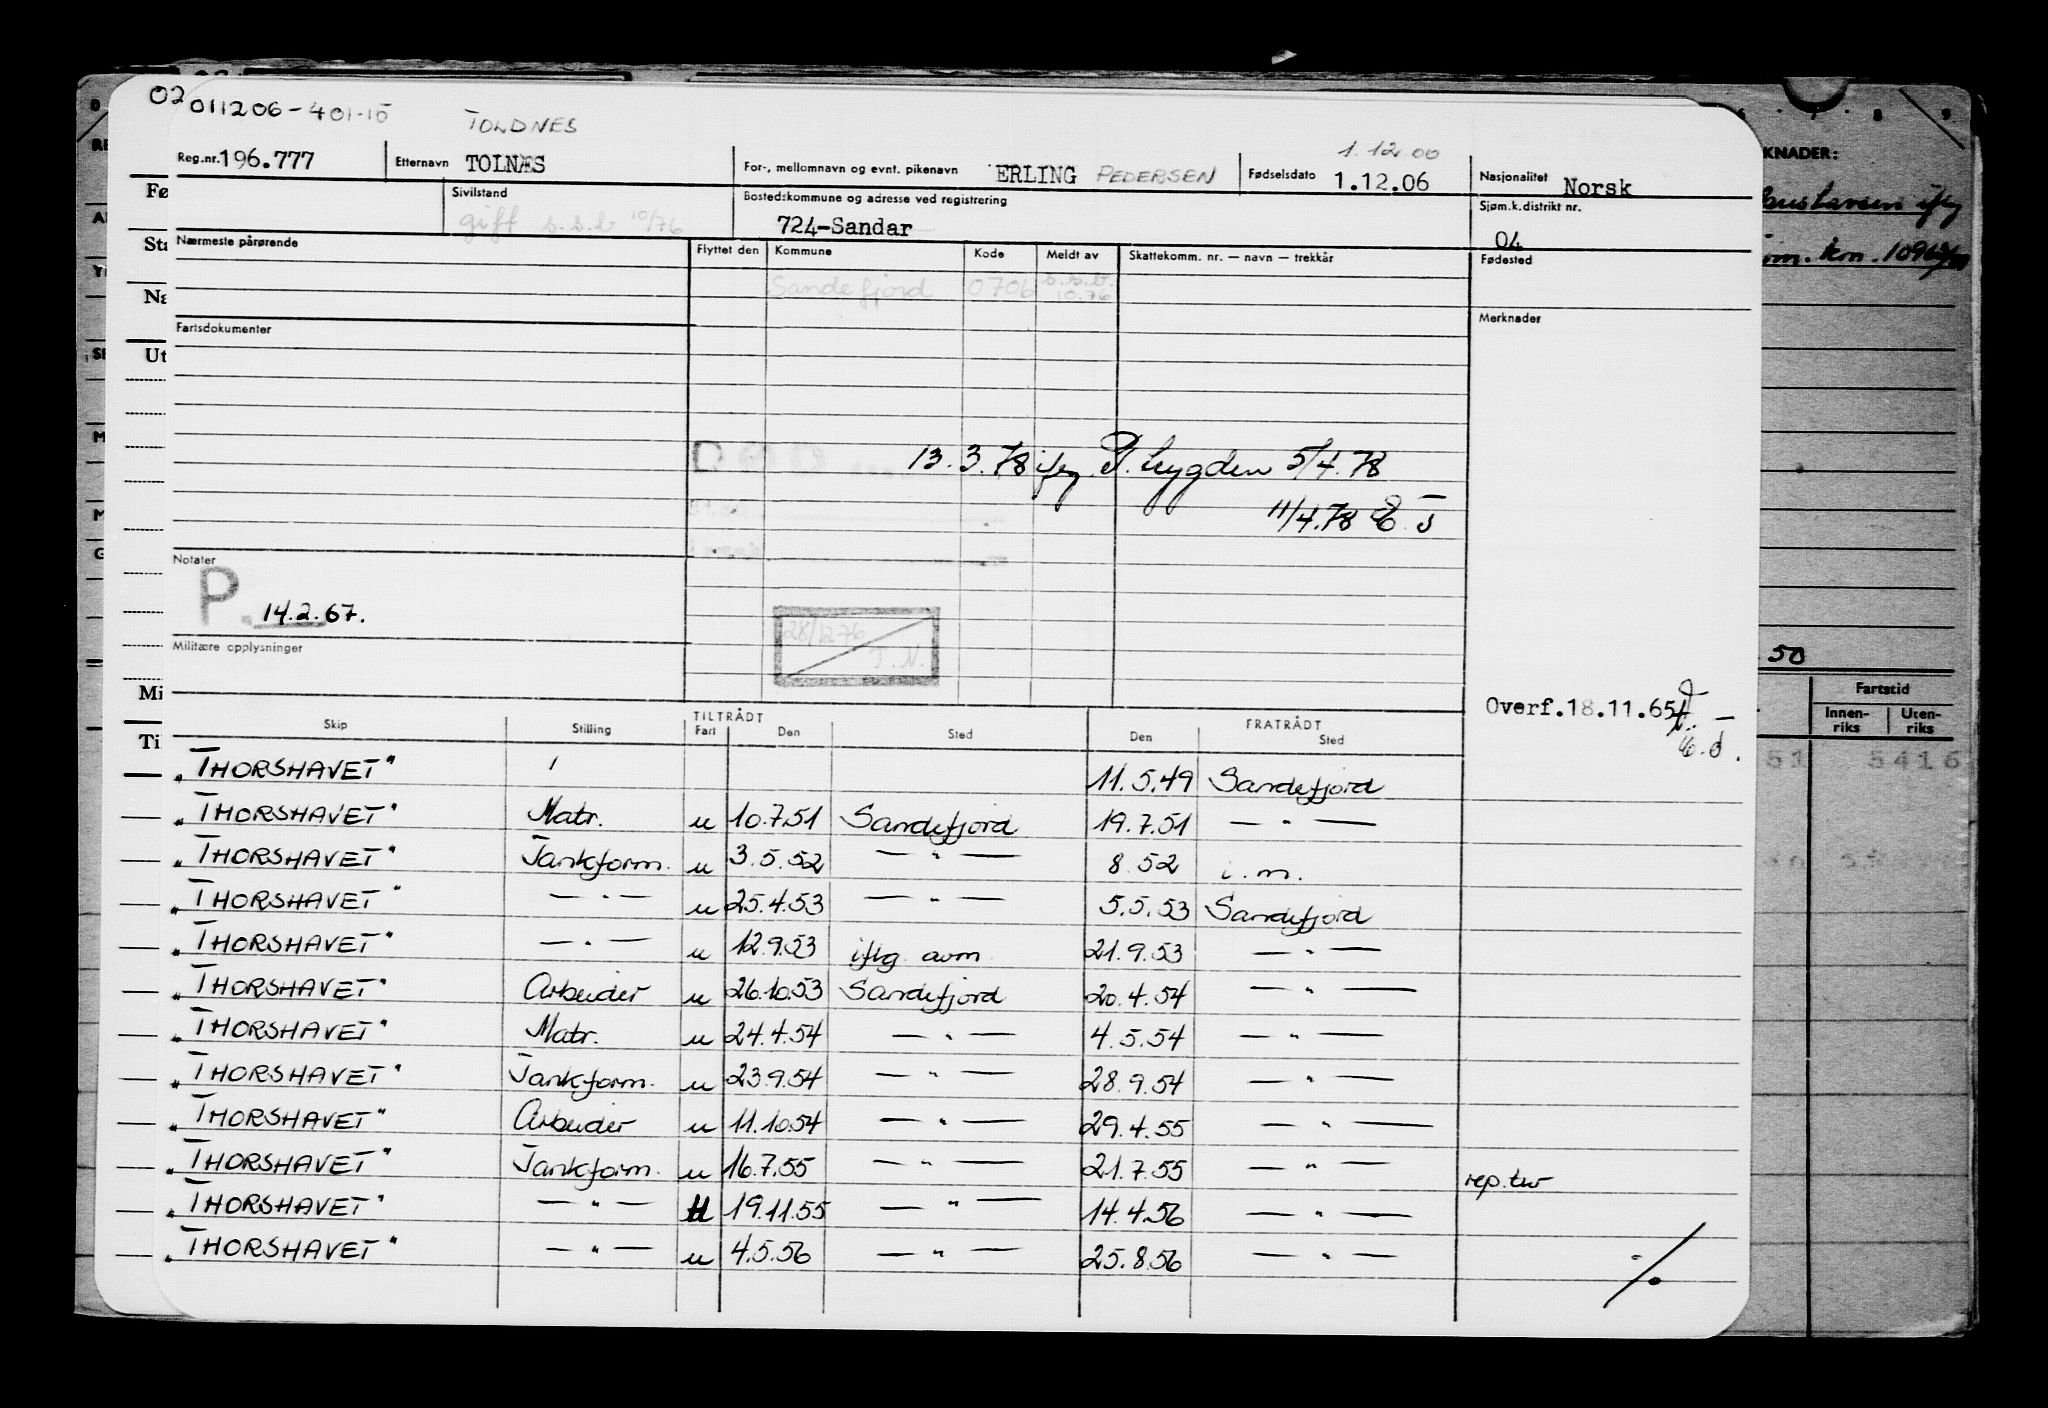 02 011206-401-15 TOLDNES
Reg.nr. 196.777 Etternavn TOLNÆS For-, mellomnavn og evnt. pikenavn ERLING PEDERSEN Fødselsdato 1.12.00 1.12.06 Nasjonalitet Norsk
Sivilstand gift s.s.b 10/76 Bostedskommune og adresse ved registrering 724-Sandar Sjøm.k.distrikt nr. 04
Nærmeste pårørende Flyttet den Kommune Kode Meldt av Skattekomm. nr. — navn — trekkår Fødested
Sandefjord 0706 s.s.b. 10.76
Fartsdokumenter Merknader
13.3.78 iflg. P. trygden 5/4.78
11/4.78
Notater
P. 14.2.67.
28/12-76 T.N.
Militære opplysninger
Overf.18.11.65
Skip Stilling TILTRÅDT Fart Den Sted FRATRÅDT Den Sted
"THORSHAVET" 11.5.49 Sandefjord
"THORSHAVET" Matr. u 10.7.51 Sandefjord 19.7.51 — " —
"THORSHAVET" Tankform. u 3.5.52 — " — 8 52 i.m.
"THORSHAVET" — " — u 25.4.53 — " — 5.5.53 Sandefjord
"THORSHAVET" — " — u 12.9.53 iflg. avm 21.9.53 — " —
"THORSHAVET" Arbeider u 26.10.53 Sandefjord 20.4.54 — " —
"THORSHAVET" Matr. u 24.4.54 — " — 4.5.54 — " —
"THORSHAVET" Tankform. u 23.9.54 — " — 28.9.54 — " —
"THORSHAVET" Arbeider u 11.10.54 — " — 29.4.55 — " —
"THORSHAVET" Tankform. u 16.7.55 — " — 21.7.55 — " — rep.tur
"THORSHAVET" — " — H 19.11.55 — " — 14.4.56 — " —
"THORSHAVET" — " — u 4.5.56 — " — 25.8.56 — " —
KNADER:
50
Fartstid
Innen-riks Uten-riks
51 5416
Fø
Sta
Na
Ut
Mi
Ti
8 9